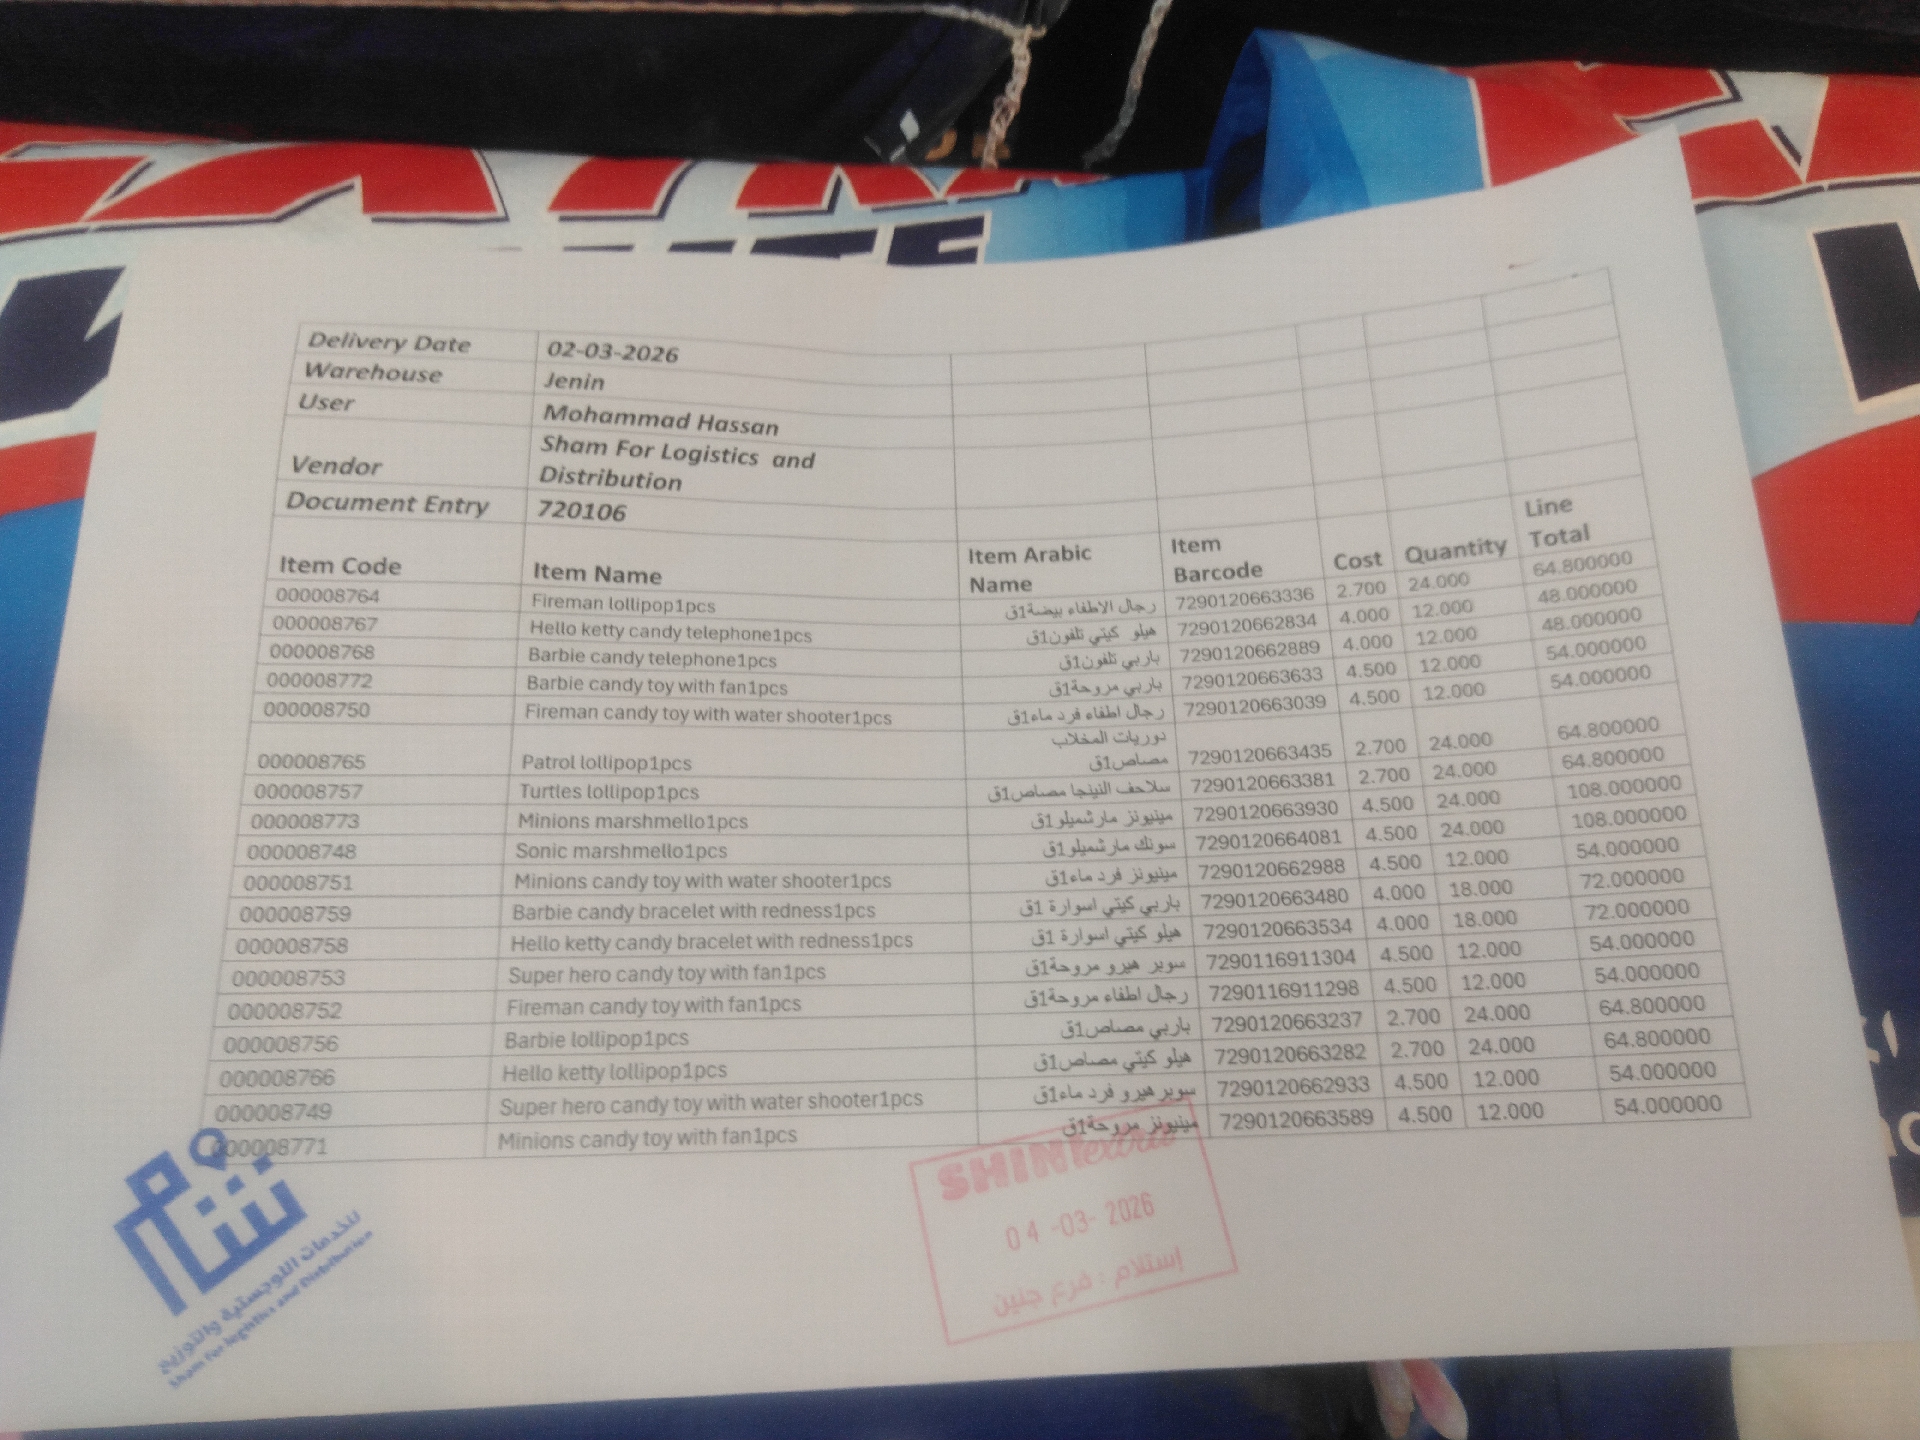 Delivery Date 02-03-2026
Warehouse Jenin
User Mohammad Hassan
Vendor Sham For Logistics and Distribution
Document Entry 720106
Item Code Item Name Item Arabic Name Item Barcode Cost Quantity Line Total
000008764 Fireman lollipop1pcs رجال الاطفاء بيضة1ق 7290120663336 2.700 24.000 64.800000
000008767 Hello ketty candy telephone1pcs هيلو كيتي تلفون1ق 7290120662834 4.000 12.000 48.000000
000008768 Barbie candy telephone1pcs باربي تلفون1ق 7290120662889 4.000 12.000 48.000000
000008772 Barbie candy toy with fan1pcs باربي مروحة1ق 7290120663633 4.500 12.000 54.000000
000008750 Fireman candy toy with water shooter1pcs رجال اطفاء فرد ماء1ق 7290120663039 4.500 12.000 54.000000
000008765 Patrol lollipop1pcs دوريات المخلاب مصاص1ق 7290120663435 2.700 24.000 64.800000
000008757 Turtles lollipop1pcs سلاحف النينجا مصاص1ق 7290120663381 2.700 24.000 64.800000
000008773 Minions marshmello1pcs مينيونز مارشميلو1ق 7290120663930 4.500 24.000 108.000000
000008748 Sonic marshmello1pcs سونك مارشميلو1ق 7290120664081 4.500 24.000 108.000000
000008751 Minions candy toy with water shooter1pcs مينيونز فرد ماء1ق 7290120662988 4.500 12.000 54.000000
000008759 Barbie candy bracelet with redness1pcs باربي كيتي اسوارة 1ق 7290120663480 4.000 18.000 72.000000
000008758 Hello ketty candy bracelet with redness1pcs هيلو كيتي اسوارة 1ق 7290120663534 4.000 18.000 72.000000
000008753 Super hero candy toy with fan1pcs سوبر هيرو مروحة1ق 7290116911304 4.500 12.000 54.000000
000008752 Fireman candy toy with fan1pcs رجال اطفاء مروحة1ق 7290116911298 4.500 12.000 54.000000
000008756 Barbie lollipop1pcs باربي مصاص1ق 7290120663237 2.700 24.000 64.800000
000008766 Hello ketty lollipop1pcs هيلو كيتي مصاص1ق 7290120663282 2.700 24.000 64.800000
000008749 Super hero candy toy with water shooter1pcs سوبر هيرو فرد ماء1ق 7290120662933 4.500 12.000 54.000000
000008771 Minions candy toy with fan1pcs مينيونز مروحة1ق 7290120663589 4.500 12.000 54.000000
شام
للخدمات اللوجستية والتوزيع
Sham For logistics and Distribution
SHINI extra
04-03-2026
إستلام : فرع جنين